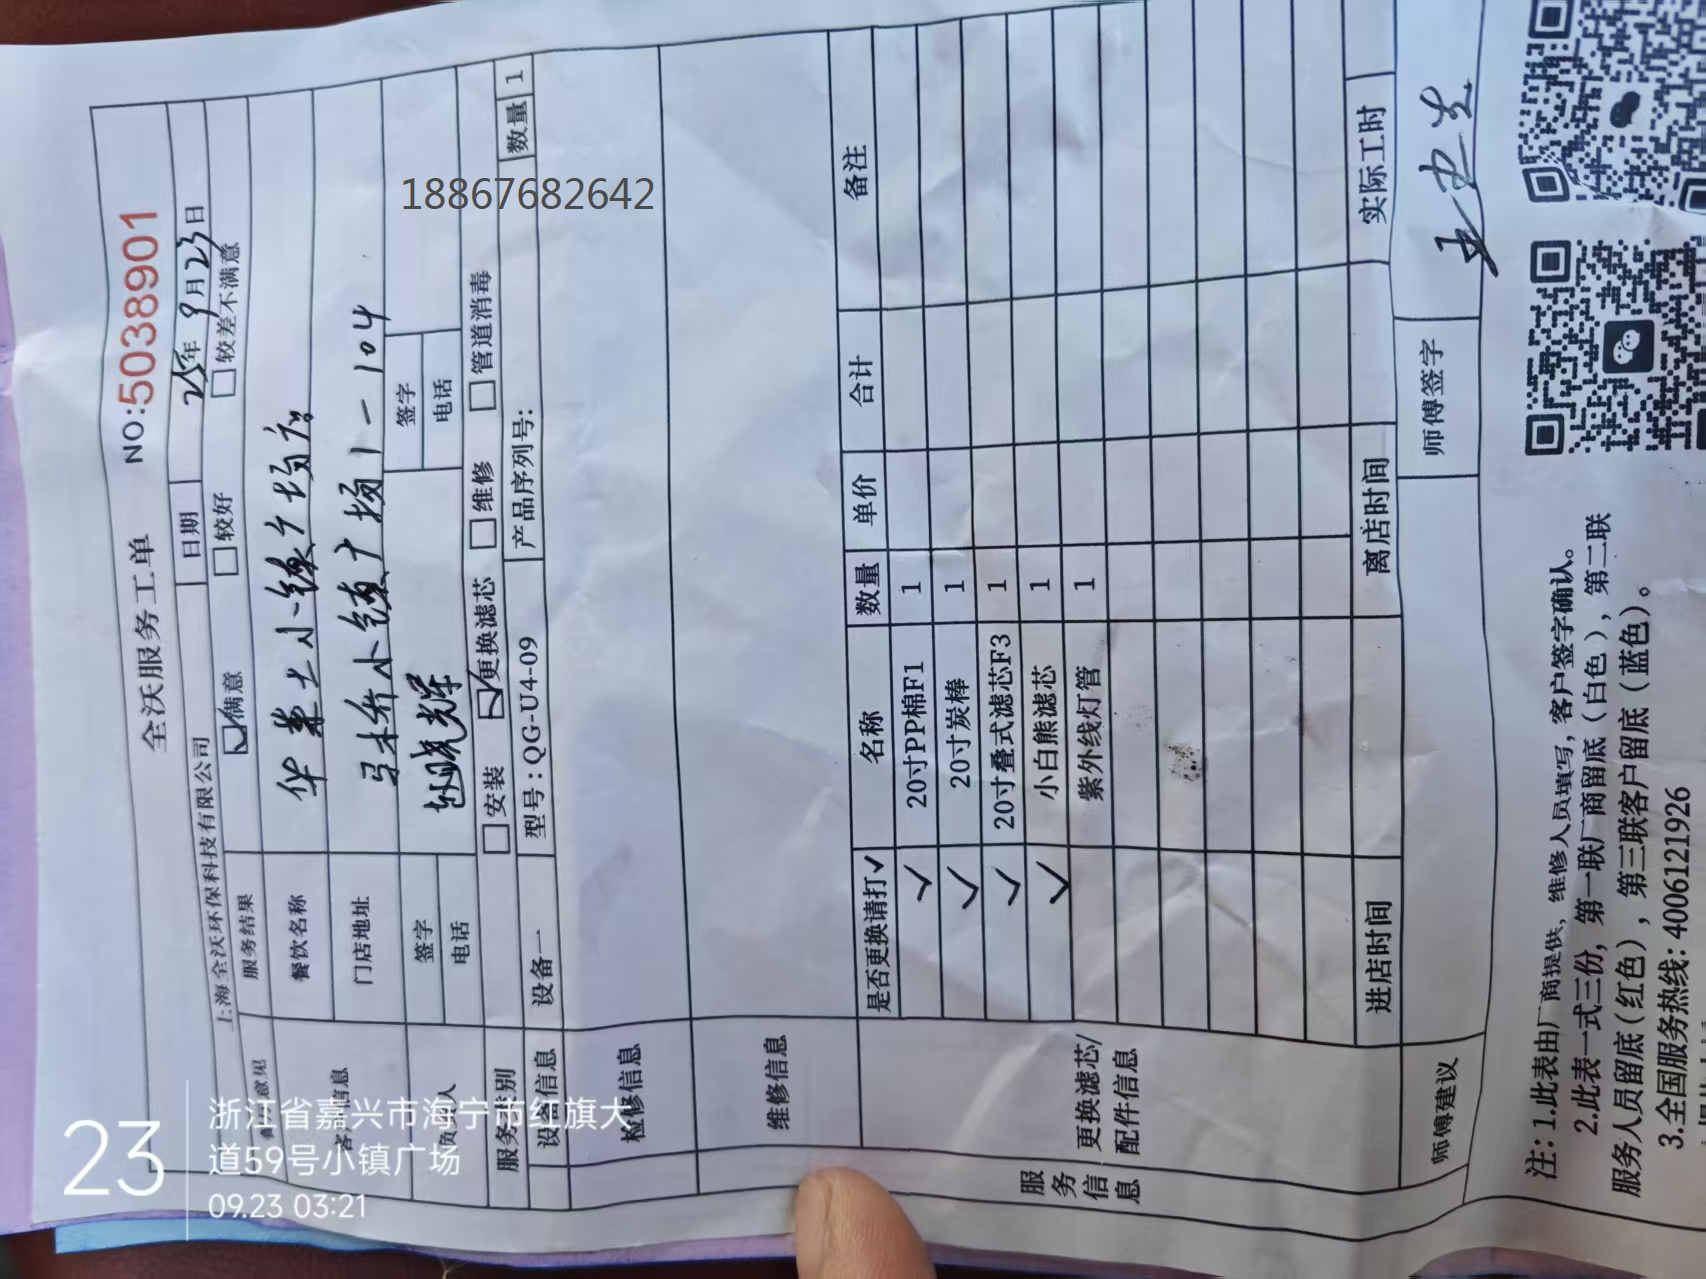 全沃服务工单 NO:5038901
上海全沃环保科技有限公司 日期 25年9月23日
服务结果 ☑满意 □较好 □较差不满意
客户信息 餐饮名称 华莱士小镇广场店
门店地址 马桥小镇广场1-104
负责人 签字 赵晓辉 签字
电话 电话
18867682642
服务类别 □安装 ☑更换滤芯 □维修 □管道消毒
设备信息 设备一 型号:QG-U4-09 产品序列号: 数量 1
检修信息
维修信息
服务信息
更换滤芯/配件信息
是否更换请打✓ 名称 数量 单价 合计 备注
✓ 20寸PP棉F1 1
✓ 20寸炭棒 1
✓ 20寸叠式滤芯F3 1
✓ 小白熊滤芯 1
紫外线灯管 1
进店时间 离店时间 实际工时
师傅建议 师傅签字
注: 1.此表由厂商提供, 维修人员填写, 客户签字确认。
2.此表一式三份, 第一联厂商留底(白色), 第二联
服务人员留底(红色), 第三联客户留底(蓝色)。
3.全国服务热线: 4006121926
23
浙江省嘉兴市海宁市红旗大
道59号小镇广场
09.23 03:21